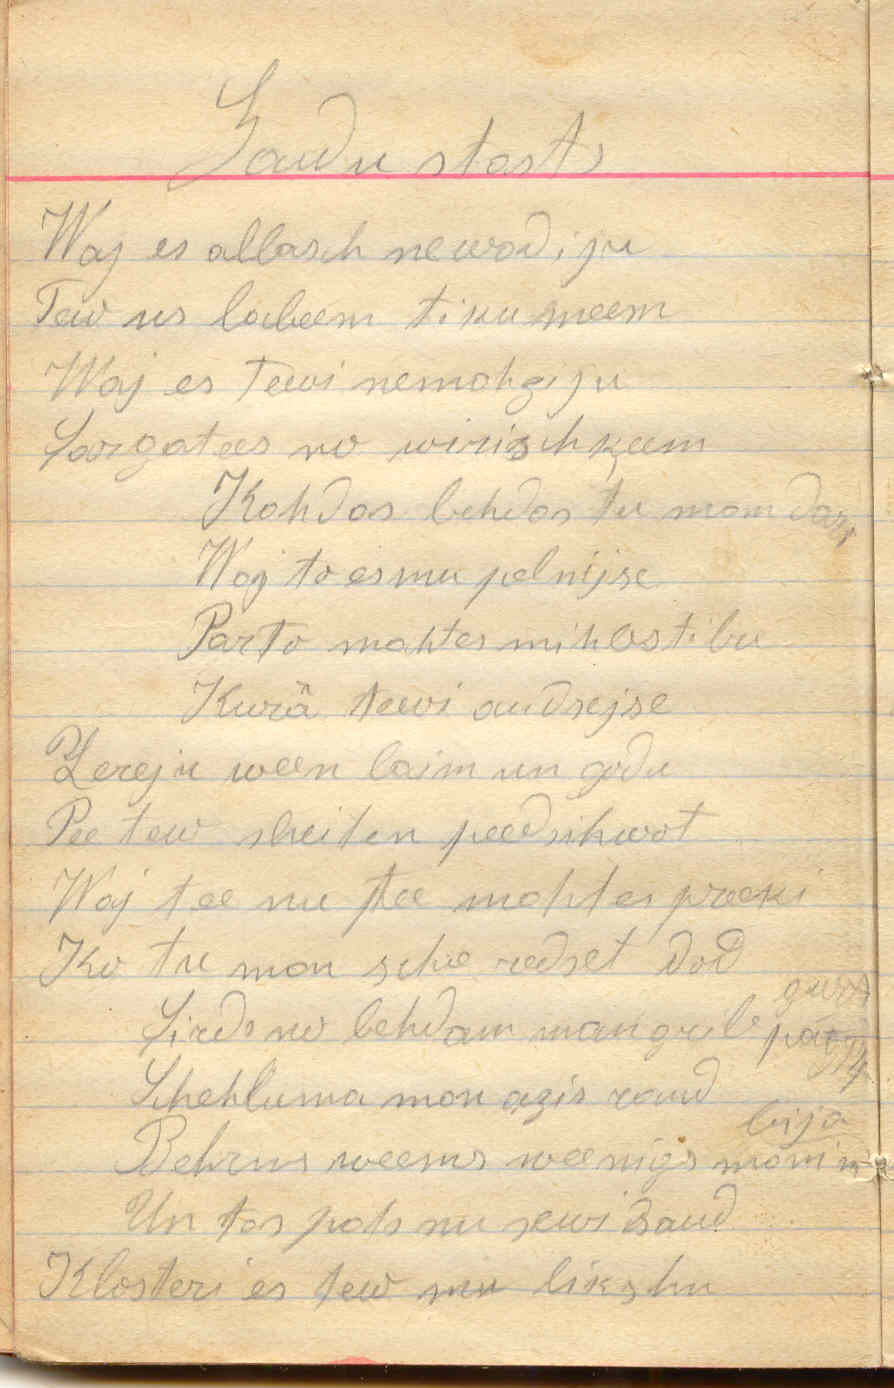 Waj es allasch newadiju
Tew us labeem tikumeem
Waj es Tewi nemahziju
Sargatees no wirischkeem
Kahdas behdas tu man dari
Waj to esmu pelnijse
Par to mahtes mihlestibu
Kurâ tewi audsejse
Zereju ween laim un godu
Pee tew sheiten peedsihwot
Waj tee nu tee mahtes preeki
Ko tu man sche redset dod
Sirds no behdam man grib
Schehluma man azis raud
Behrns weens weenigs
bija
Un tas pats nu sewi saud
Klosteri es tew nu likshu